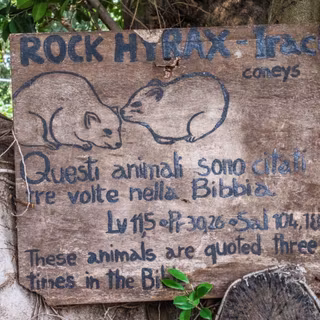 ROCK HYRAX - Irac
coneys
Questi animali sono citati
tre volte nella Bibbia.
Lv 11,5 • Pr 30,26 • Sal 104,18
These animals are quoted three
times in the Bi